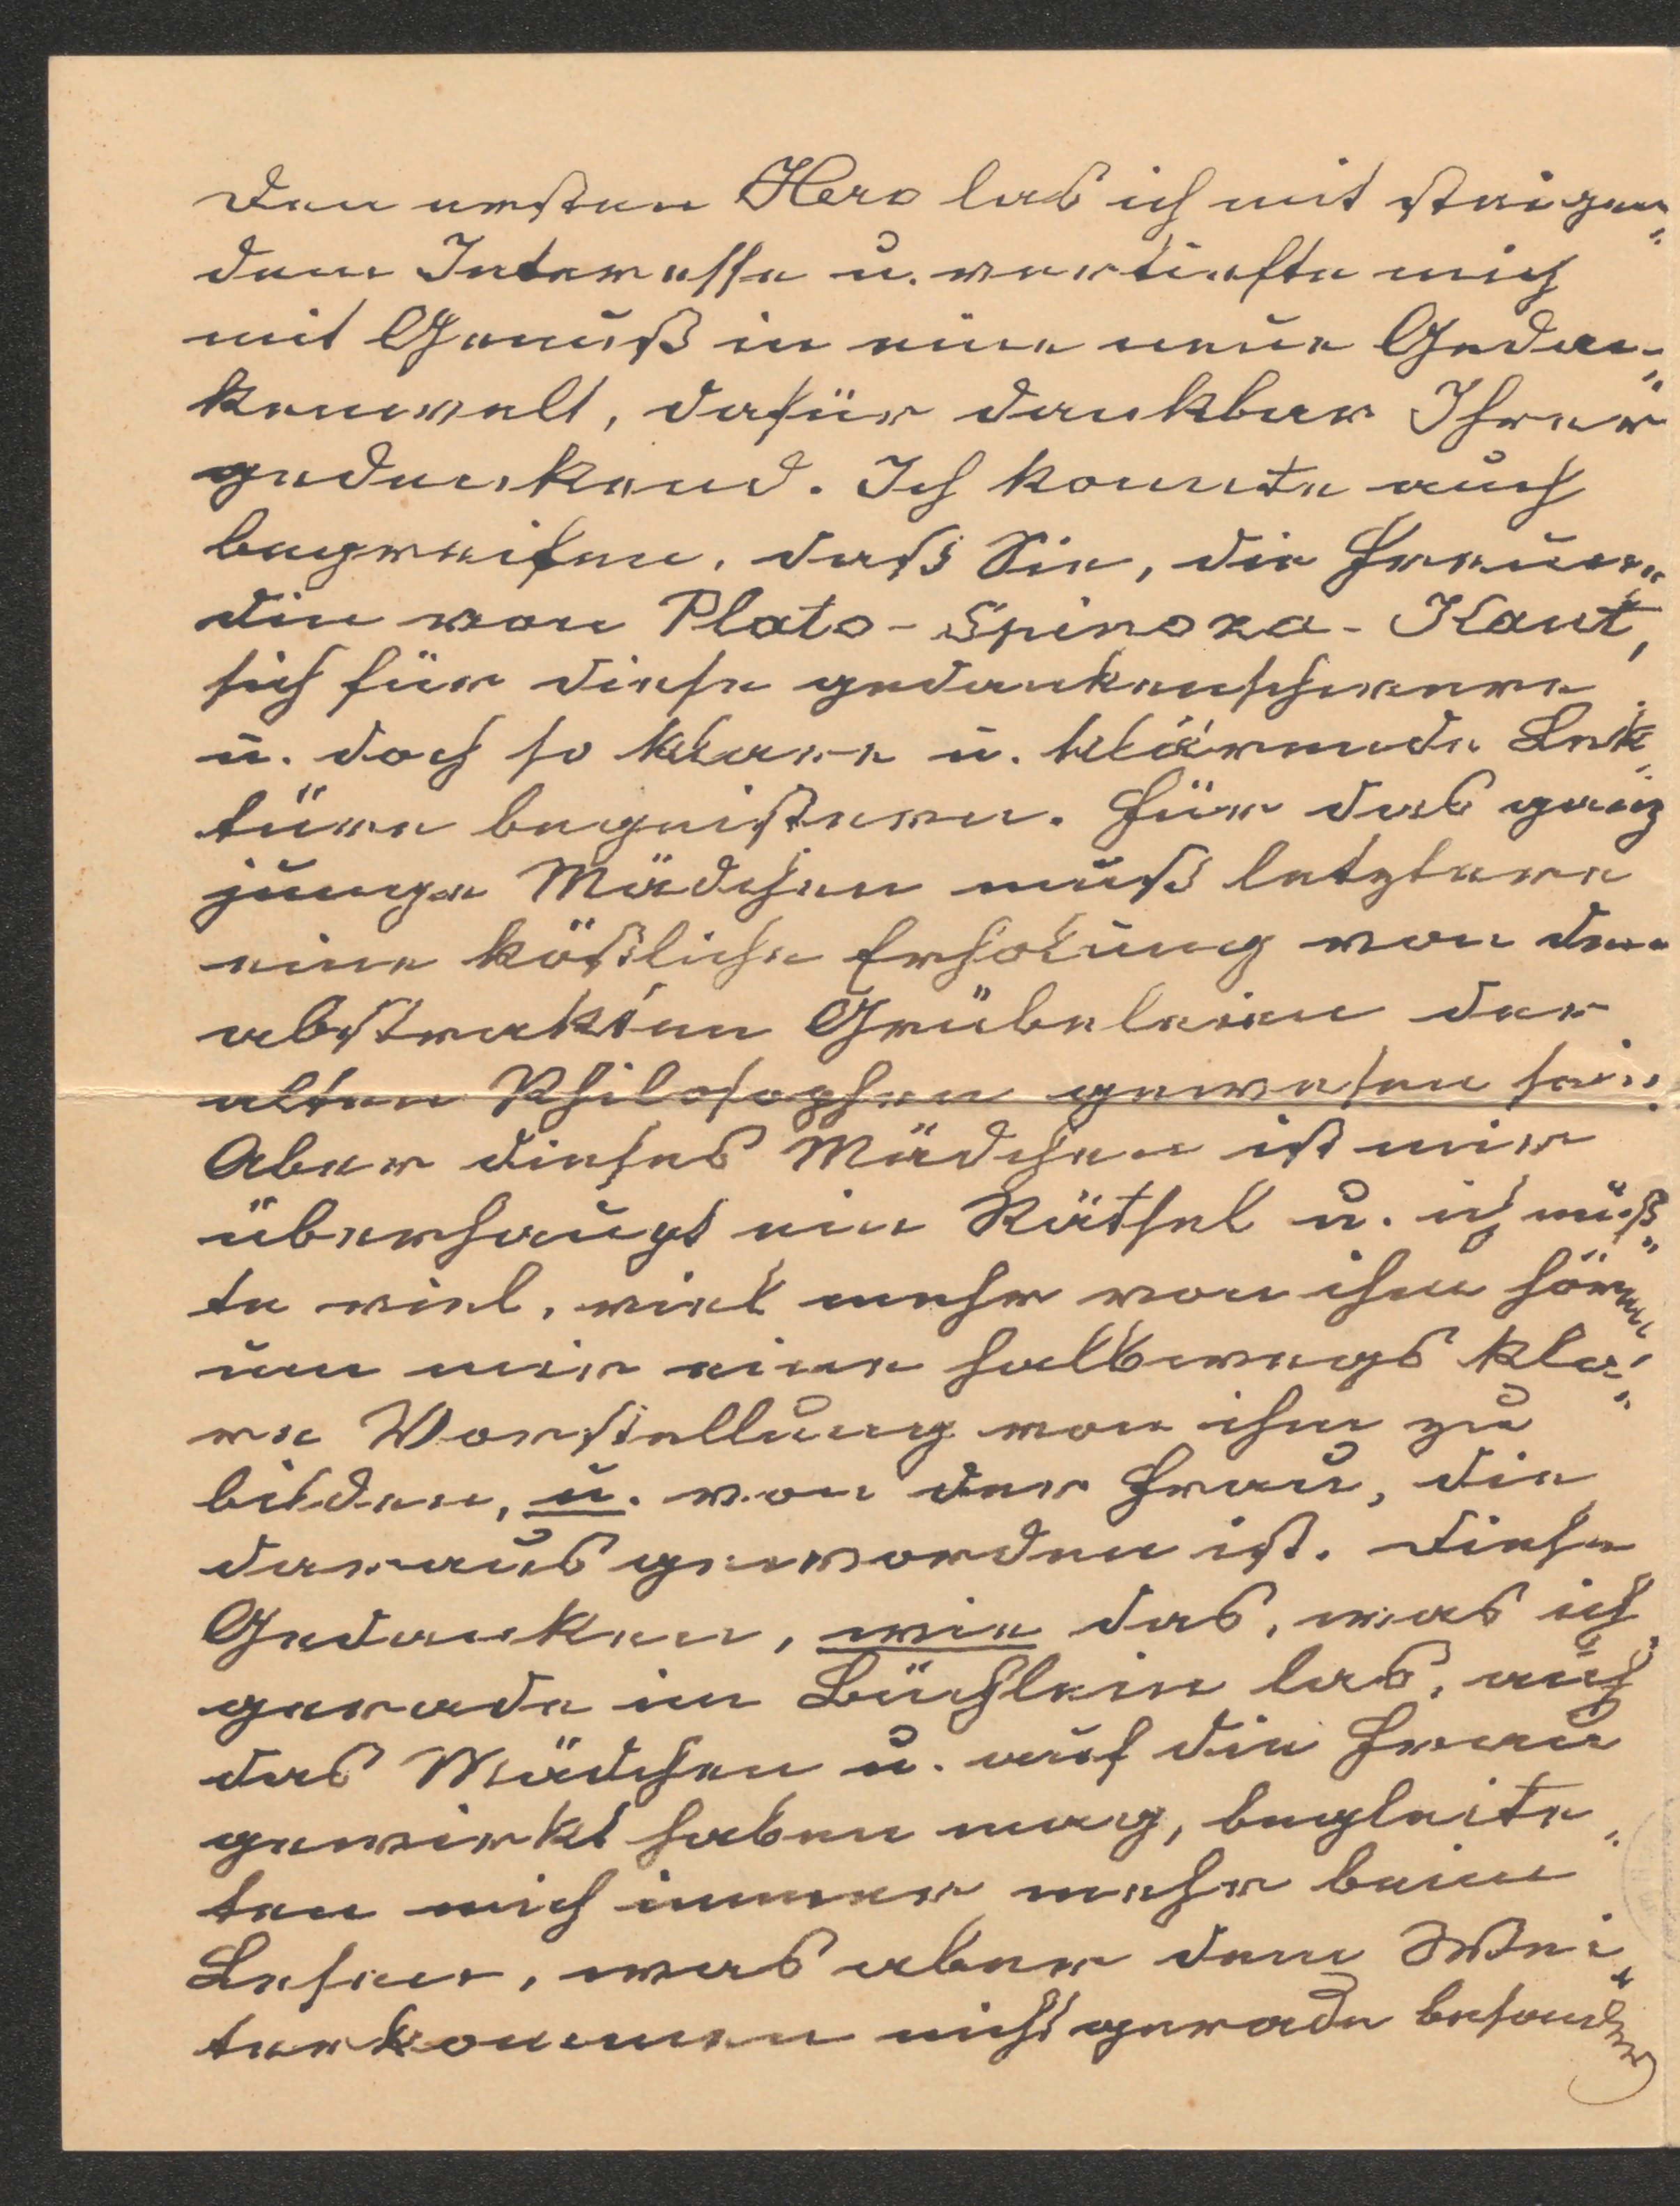 Den ersten Hero las ich mit steigen-
dem Interesse u. vertiefte mich
mit Genuß in eine neue Gedan-
kenwelt, dafür dankbar Ihrer
gedenkend. Ich konnte auch
begreifen, daß Sie, die Freun-
din von Plato - Spinoza - Kant,
sich für diese gedankenschwere
u. doch so klare u. klärende Lek-
türe begeistern. Für das ganz
junge Mädchen muß letztere
eine köstliche Erholung von den
abstrakten Grübeleien der
alten Philosophen gewesen sein.
Aber dieses Mädchen ist mir
überhaupt ein Rätsel u. ich müß-
te viel, viel mehr von ihm hören
um mir eine halbwegs kla-
re Vorstellung von ihm zu
bilden, u. von der Frau, die
daraus geworden ist. Diese
Gedanken, wie das, was ich
gerade im Büchlein las, auf
das Mädchen u. auf die Frau
gewirkt haben mag, begleite-
ten mich immer mehr beim
Lesen, was aber dem Wei-
terkommen nicht gerade besonders